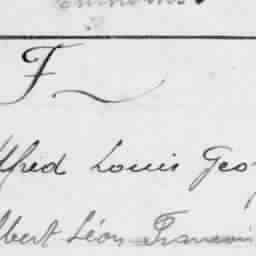 F
Alfred Louis Geo
Albert Léon François